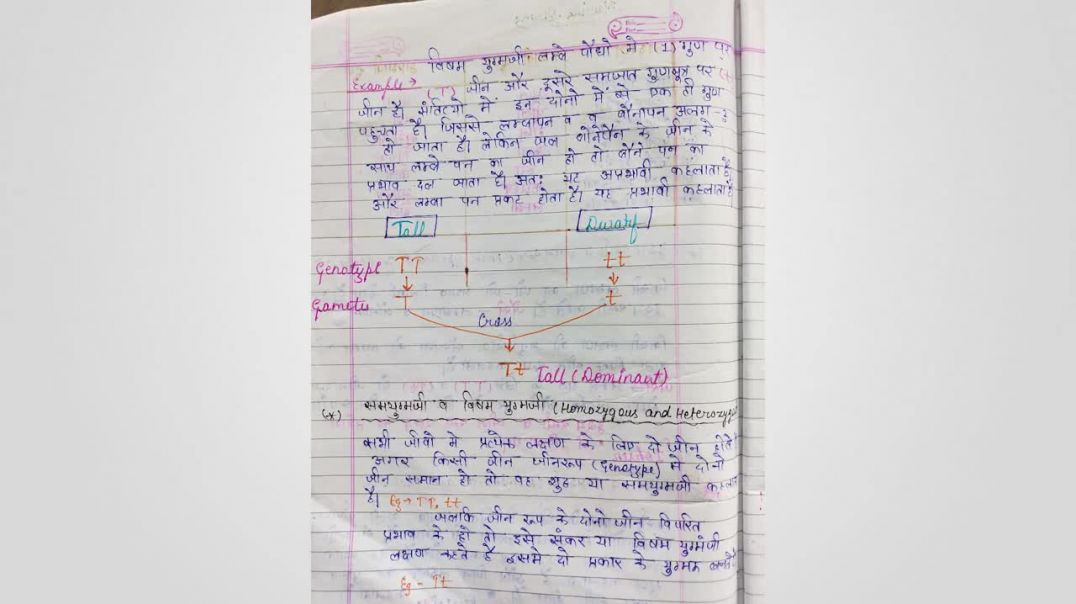 विषम युग्मजी लम्बे पौधो मे (1) गुण पर
Example → (T) जीन और दूसरे समजात गुणसूत्र पर (t
जीन है। संततियो में इन दोनो में से एक ही गुण
पहुचता है। जिससे लम्बापन व व बौनापन अलग-२
हो जाता है। लेकिन जब बोनेपन के जीन के
साथ लम्बे पन का जीन हो तो बौने पन का
प्रभाव दब जाता है। अतः यह अप्रभावी कहलाता है
और लम्बा पन प्रकट होता है। यह प्रभावी कहलाता है
Tall Dwarf
Genotype TT tt
Gamete T t
Cross
Tt Tall (Dominant)
समयुग्मजी व विषम युग्मजी (Homozygous and Heterozyg
सभी जीवो मे प्रत्येक लक्षण के लिए दो जीन होते
अगर किसी जीन जीनरूप (Genotype) मे दोनो
जीन समान हो तो वह शुद्ध या समयुग्मजी कहलात
है। Eg → TT, tt
जबकि जीन रूप के दोनो जीन विपरित
प्रभाव के हो तो इसे संकर या विषम युग्मजी
लक्षण कहते है इसमे दो प्रकार के युग्मक बनते है
Eg - Tt